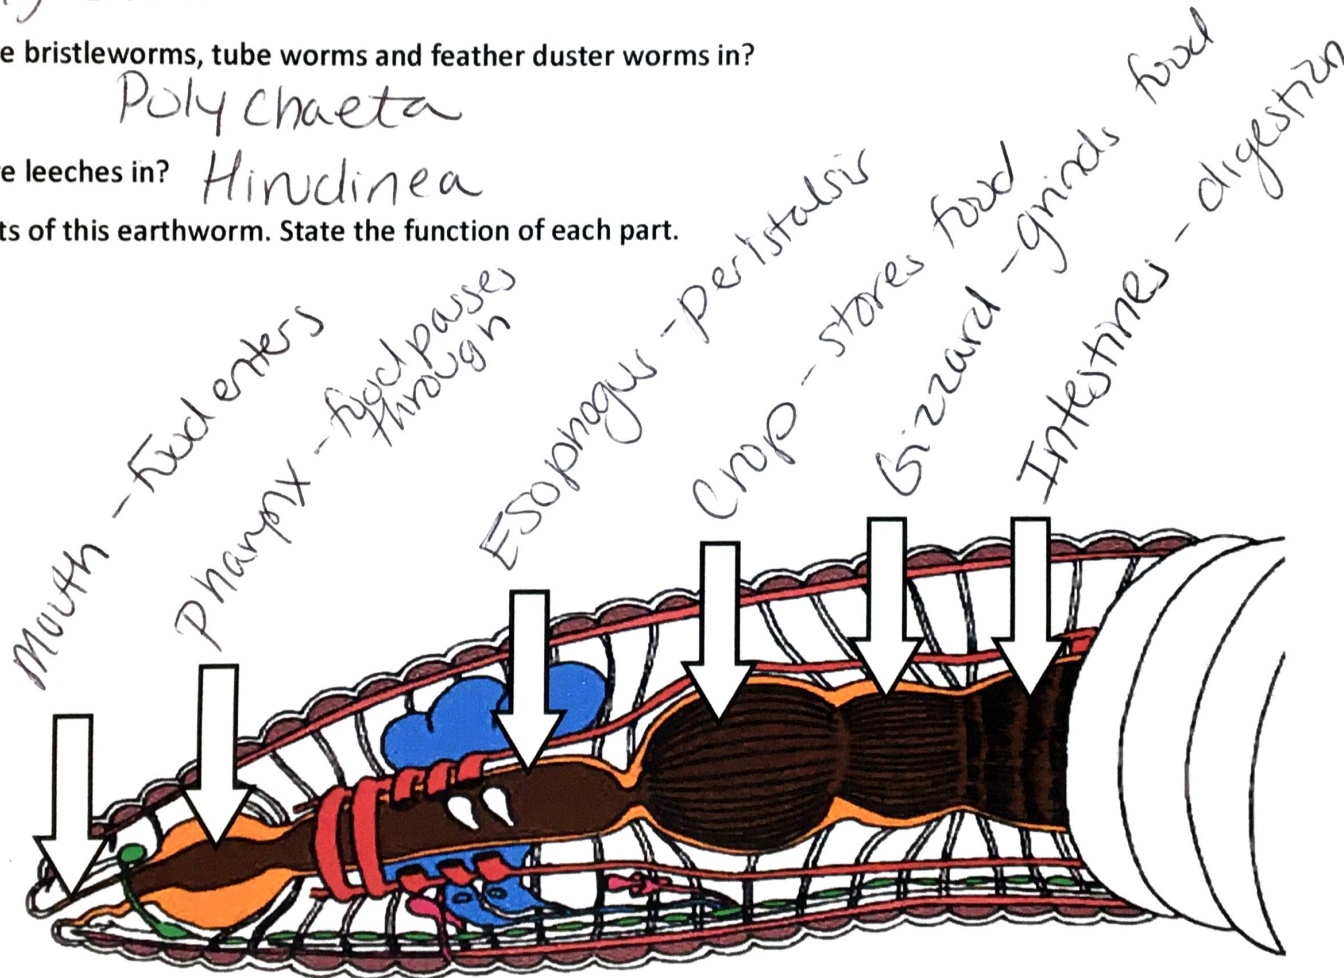 e bristleworms, tube worms and feather duster worms in?
Polychaeta
e leeches in? Hirudinea
ts of this earthworm. State the function of each part.
Mouth - food enters
Pharynx - food passes
through
Esophagus - peristalsis
Crop - stores food
Gizzard - grinds food
Intestines - digestion